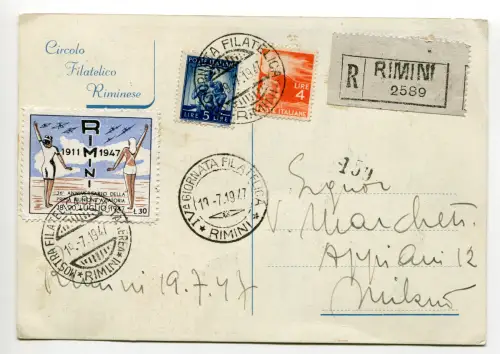 Circolo
Filatelico
Riminese
GIORNATA FILATELICA
LIRE 5 LIRE
LIRE
4
POSTE ITALIANE
R RIMINI
2589
RIMINI
1911 1947
36° ANNIVERSARIO DELLA
18-20 LUGLIO 1947
L.30
IVª GIORNATA FILATELICA
19.-7.1947
RIMINI
MOSTRA FILATELICA
19.-7.1947
RIMINI
154
Signor
V. Marchetti
Appiani 12
Milano
Rimini 19.7.47